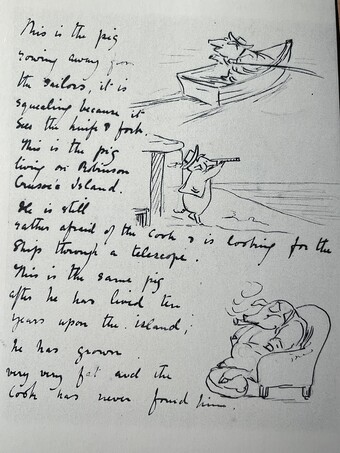 This is the pig
rowing away from
the sailors, it is
squealing because it
sees the knife & fork.
This is the pig
living on Robinson
Crusoe's Island.
He is still
rather afraid of the cook & is looking for the
ship through a telescope.
This is the same pig
after he has lived ten
years upon the island;
he has grown
very very fat and the
cook has never found him.